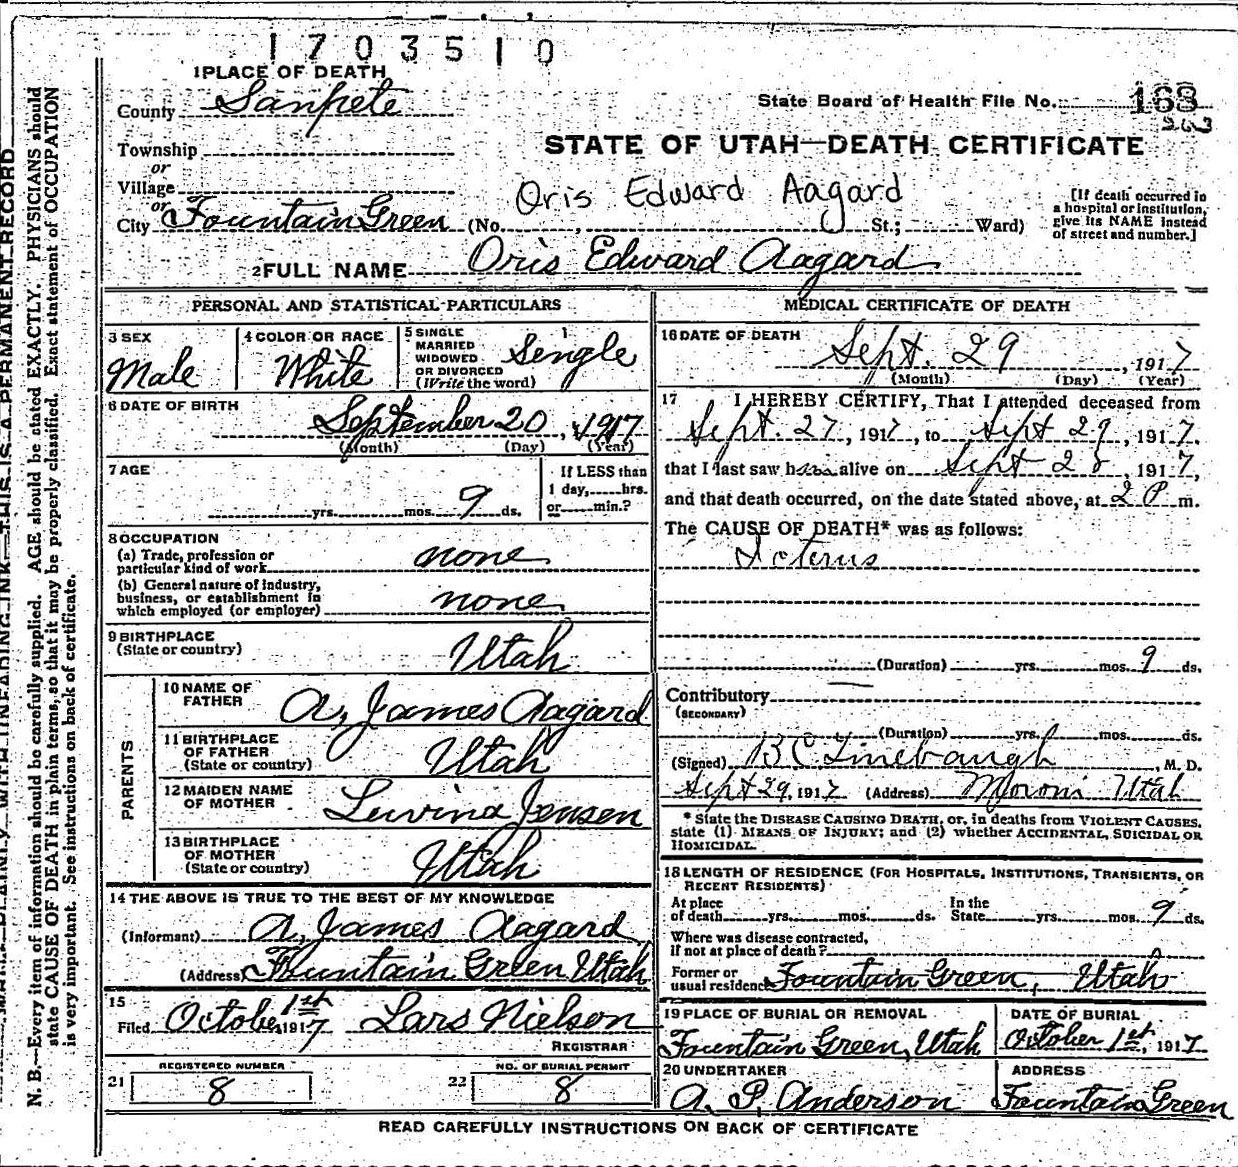 1703510
1 PLACE OF DEATH
County Sanpete
State Board of Health File No. 168
263
STATE OF UTAH—DEATH CERTIFICATE
Township
or
Village
or
City Fountain Green (No. , St.; Ward)
Oris Edward Aagard
[If death occurred in
a hospital or institution,
give its NAME instead
of street and number.]
2 FULL NAME Oris Edward Aagard
PERSONAL AND STATISTICAL PARTICULARS
3 SEX
Male
4 COLOR OR RACE
White
5 SINGLE
MARRIED
WIDOWED
OR DIVORCED
(Write the word)
Sengle
6 DATE OF BIRTH
September 20, 1917
(Month) (Day) (Year)
7 AGE
yrs. mos. 9 ds.
If LESS than
1 day, hrs.
or min.?
8 OCCUPATION
(a) Trade, profession or
particular kind of work none
(b) General nature of industry,
business, or establishment in
which employed (or employer) none
9 BIRTHPLACE
(State or country) Utah
PARENTS
10 NAME OF
FATHER A, James Aagard
11 BIRTHPLACE
OF FATHER
(State or country) Utah
12 MAIDEN NAME
OF MOTHER Luvina Jensen
13 BIRTHPLACE
OF MOTHER
(State or country) Utah
14 THE ABOVE IS TRUE TO THE BEST OF MY KNOWLEDGE
(Informant) A, James Aagard
(Address) Fountain Green Utah
15
Filed October 1st 1917 Lars Nielson
REGISTRAR
21 REGISTERED NUMBER
8
22 NO. OF BURIAL PERMIT
8
MEDICAL CERTIFICATE OF DEATH
16 DATE OF DEATH
Sept. 29, 1917
(Month) (Day) (Year)
17 I HEREBY CERTIFY, That I attended deceased from
Sept. 27, 1917, to Sept 29, 1917.
that I last saw him alive on Sept 28, 1917,
and that death occurred, on the date stated above, at 2 P m.
The CAUSE OF DEATH* was as follows:
Icterus
(Duration) yrs. mos. 9 ds.
Contributory
(SECONDARY)
(Duration) yrs. mos. ds.
(Signed) B C Linebaugh, M. D.
Sept 29, 1917 (Address) Moroni Utah
* State the DISEASE CAUSING DEATH, or, in deaths from VIOLENT CAUSES,
state (1) MEANS OF INJURY; and (2) whether ACCIDENTAL, SUICIDAL OR
HOMICIDAL.
18 LENGTH OF RESIDENCE (FOR HOSPITALS, INSTITUTIONS, TRANSIENTS, OR
RECENT RESIDENTS)
At place
of death yrs. mos. ds.
In the
State yrs. mos. 9 ds.
Where was disease contracted,
if not at place of death?
Former or
usual residence Fountain Green, Utah
19 PLACE OF BURIAL OR REMOVAL
Fountain Green, Utah
DATE OF BURIAL
October 1st, 1917
20 UNDERTAKER
A. P. Anderson
ADDRESS
Fountain Green
READ CAREFULLY INSTRUCTIONS ON BACK OF CERTIFICATE
WRITE PLAINLY WITH UNFADING INK—THIS IS A PERMANENT RECORD
N. B.—Every item of information should be carefully supplied. AGE should be stated EXACTLY. PHYSICIANS should
state CAUSE OF DEATH in plain terms, so that it may be properly classified. Exact statement of OCCUPATION
is very important. See instructions on back of certificate.